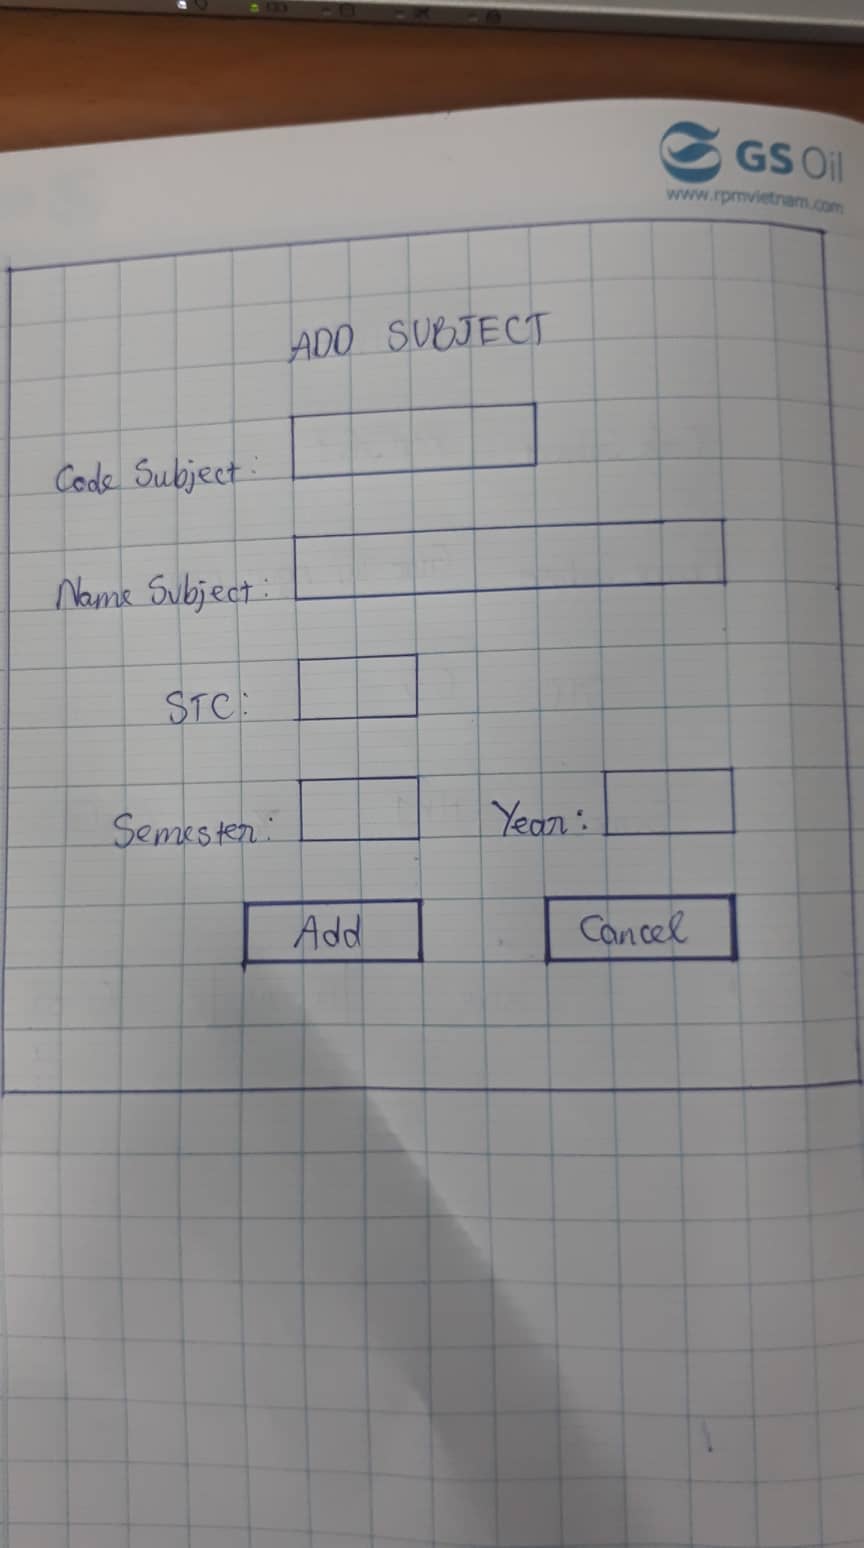 GS Oil
www.rpmvietnam.com
ADD SUBJECT
Code Subject:
Name Subject:
STC:
Semester: Year:
Add Cancel